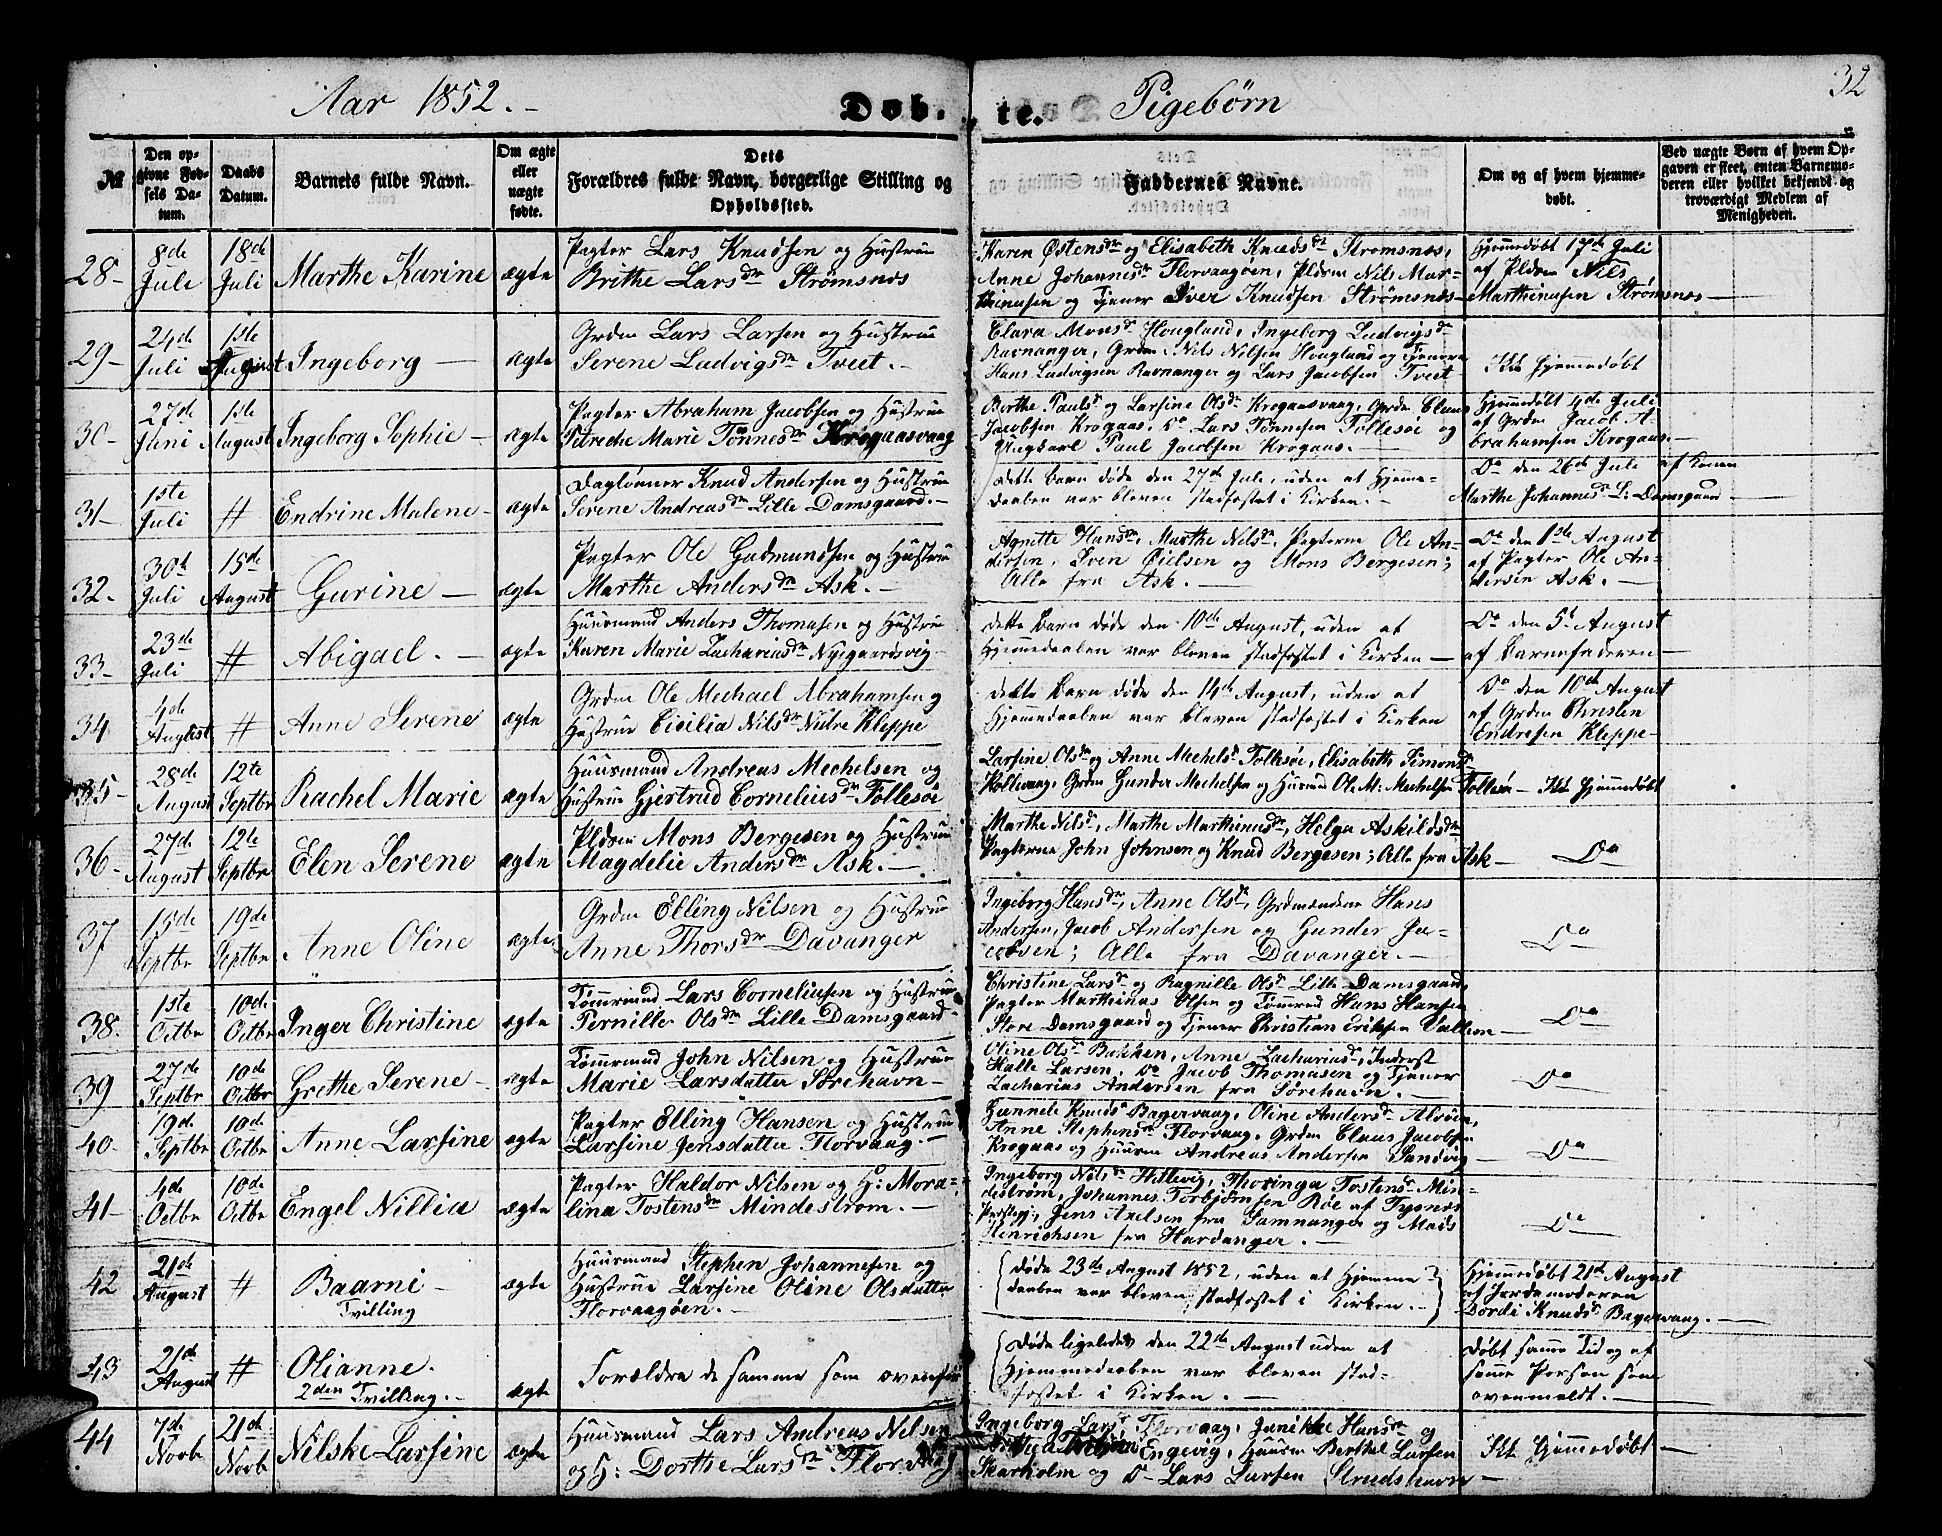 Aar 1852.
Døb. te. Pigebørn
32
№
Den opgivne Fødsels Datum.
Daabs Datum.
Barnets fulde Navn.
Om ægte eller uægte fødte.
Dets Forældres fulde Navn, borgerlige Stilling og Opholdssted.
Faddernes Navne.
Om og af hvem hjemmedøbt.
Ved uægte Børn af hvem Opgaven er skeet, enten Barnemoderen eller hvilket bekjendt og troværdigt Medlem af Menigheden.
28 8de Juli 18de Juli Marthe Karine ægte
Pagter Lars Knudsen og Hustrue
Brithe Larsdr Strømsnes
Karen Østensdr og Elisabeth Knudsdr Strømsnes,
Anne Johannesdr Florvaagøen, Pldsm Nils Mar-
thinusen og Tjener Iver Knudsen Strømsnes
Hjemmedøbt 17de Juli
af Pldsm Nils
Marthinusen Strømsnes
29 24de Juli 1ste August Ingeborg ægte
Grdm Lars Larsen og Hustrue
Serene Ludvigsdr Tveit.
Clara Monsdr Hougland, Ingeborg Ludvigsdr
Ravnanger, Grdm Nils Nilsen Hougland og Tjenere
Hans Ludvigsen Ravnanger og Lars Jacobsen Tveit
Ikke hjemmedøbt
30 27de Juni 1ste August Ingeborg Sophie ægte
Pagter Abraham Jacobsen og Hustrue
Petreche Marie Tönnesdr Krogaasvaag
Berthe Paulsdr og Larsine Olsdr Krogaasvaag, Grdm Claus
Jacobsen Krogaas, Do Lars Tönnesen Follesøe og
Ungkarl Paul Jacobsen Krogaas.
Hjemmedøbt 4de Juli
af Grdm Jacob A-
brahamsen Krogaas.
31 1ste Juli # Endrine Malene ægte
Daglønner Knud Andersen og Hustrue
Serene Andreasdr Lille Damsgaard.
Dette Barn døde den 27de Juli, uden at Hjemme-
daaben var bleven stadfæstet i Kirken.
Do den 26de Juli af Konen
Marthe Johannesdr L: Damsgaard
32 30te Juli 15de August Gurine ægte
Pagter Ole Gudmundsen og Hustrue
Marthe Andersdr Ask.
Agnette Hansdr, Marthe Nilsdr, Pagterne Ole An-
dersen, Sven Øielsen og Mons Bergesen;
Alle fra Ask.
Do den 1ste August
af Pagter Ole An-
dersen Ask.
33 23de Juli # Abigael. ægte
Huusmand Anders Thomasen og Hustrue
Karen Marie Zachariasdr Nyegaardsvig
Dette Barn døde den 10de August, uden at
Hjemmedaaben var bleven stadfæstet i Kirken
Do den 5te August
af Barnefaderen
34 4de August # Anne Serene ægte
Grdm Ole Mechael Abrahamsen og
Hustrue Cicilia Nilsdr Nedre Kleppe
Dette Barn døde den 14de August, uden at
Hjemmedaaben var bleven stadfæstet i Kirken
Do den 10de August
af Grdm Christen
Endresen Kleppe
35 28de August 12te Septbr Rachel Marie ægte
Huusmand Andreas Mechelsen og
Hustrue Gjertrud Corneliusdr Follesøe
Larsine Olsdr og Anne Mechelsdr Follesøe, Elisabeth Simonsdr
Kollevaag, Grdm Gunder Mechelsen og Huusm Ole M: Mechelsen Follesøe
Ikke hjemmedøbt
36 27de August 12te Septbr Elen Serene ægte
Pldsm Mons Bergesen og Hustrue
Magdelie Andersdr Ask.
Marthe Nilsdr, Marthe Marthinusdr, Helga Askildsdr
Pagterne John Johnsen og Knud Bergesen; Alle fra Ask
Do
37 15de Septbr 19de Septbr Anne Oline ægte.
Grdm Elling Nilsen og Hustrue
Anne Thorsdr Davanger
Ingeborg Hansdr, Anne Olsdr, Grdmændene Hans
Andersen, Jacob Andersen og Gunder Ja-
cobsen; Alle fra Davanger.
Do
38. 1ste Octbr 10de Octbr Inger Christine ægte
Tömrmand Lars Corneliusen og Hustrue
Pernille Olsdr Lille Damsgaard
Christine Larsdr og Ragnille Olsdr Lille Damsgaard,
Pagter Marthinus Olsen og Tömrmd Hans Hansen
Store Damsgaard og Tjener Christian Eriksen Vallem
Do
39 27de Septbr 10de Octbr Grethe Serene ægte
Tömrmand John Nilsen og Hustrue
Marie Larsdatter Sørehavn
Oline Olsdr Bakken, Anne Zachariasdr, Inderst
Halle Larsen, Do Jacob Thomasen og Tjener
Zacharias Andersen fra Sørehavn.
Do
40. 19de Septbr 10de Octbr Anne Larsine ægte
Pagter Elling Hansen og Hustrue
Larsine Jensdatter Florvaag.
Hannele Knudsdr Bagervaag, Oline Andersdr Alvøen,
Anne Stephensdr Florvaag, Grdm Claus Jacobsen
Krogaas og Huusm Andreas Andersen Sandvig
Do
41 4de Octbr 10de Octbr Engel Nillia ægte
Pagter Haldor Nilsen og H: Mora-
lina Tostensdr Mindestrøm.
Ingeborg Nilsdr Hillevig, Thoringa Tostensdr Min-
destrøm, Johannes Torbjørnsen Røe af Tysnes
Præstegj:, Jens Axelsen fra Samnanger og Mads
Henrichsen fra Hardanger.
Do
42 21de August # Baarni
Tvilling ægte
Huusmand Stephen Johannesen og
Hustrue Larsine Oline Olsdatter
Florvaagøen.
Døde 23de August 1852, uden at Hjemme-
daaben var bleven stadfæstet i Kirken.
Hjemmedøbt 21de August
af Jordemoderen
Dordi Knudsdr Bagervaag.
43 21de August # Olianne.
2den Tvilling. ægte
Forældre de samme som ovenfor
Døde ligeledes den 22de August uden at
Hjemmedaaben var bleven stad-
fæstet i Kirken.
Døbt samme Tid og af
samme Person som
ovenmeldt.
44 7de Novbr 21de Novbr Nilske Larsine ægte
Huusmand Lars Andreas Nilsen
og H: Dorthe Larsdr Florvaag
Ingeborg Larsdr Florvaag, Janikke Hansdr og
Engevig, Huusm Berthel Larsen
Skarholm og Do Lars Larsen Strudshavn
Ikke hjemmedøbt